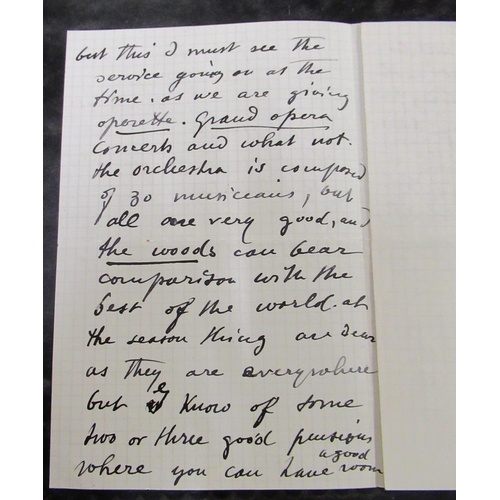 but this I must see the
service going on at the
time. as we are giving
operette. Grand opera
Concerts and what not.
the orchestra is composed
of 30 musicians, but
all are very good, and
the woods can bear
comparison with the
best of the world. at
the season thing are dear
as they are everywhere
but I know of some
two or three good pensions
where you can have a good room